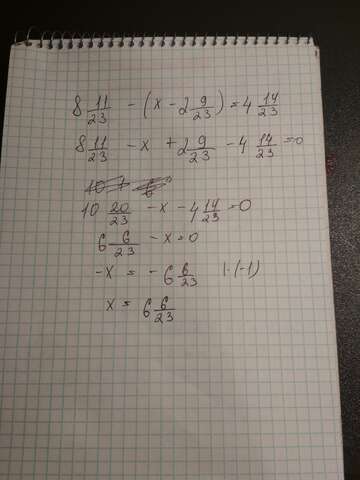 8 11/23 - (x - 2 9/23) = 4 14/23
8 11/23 - x + 2 9/23 - 4 14/23 = 0
10 20/23 - x - 4 14/23 = 0
6 6/23 - x = 0
-x = - 6 6/23 | · (-1)
x = 6 6/23